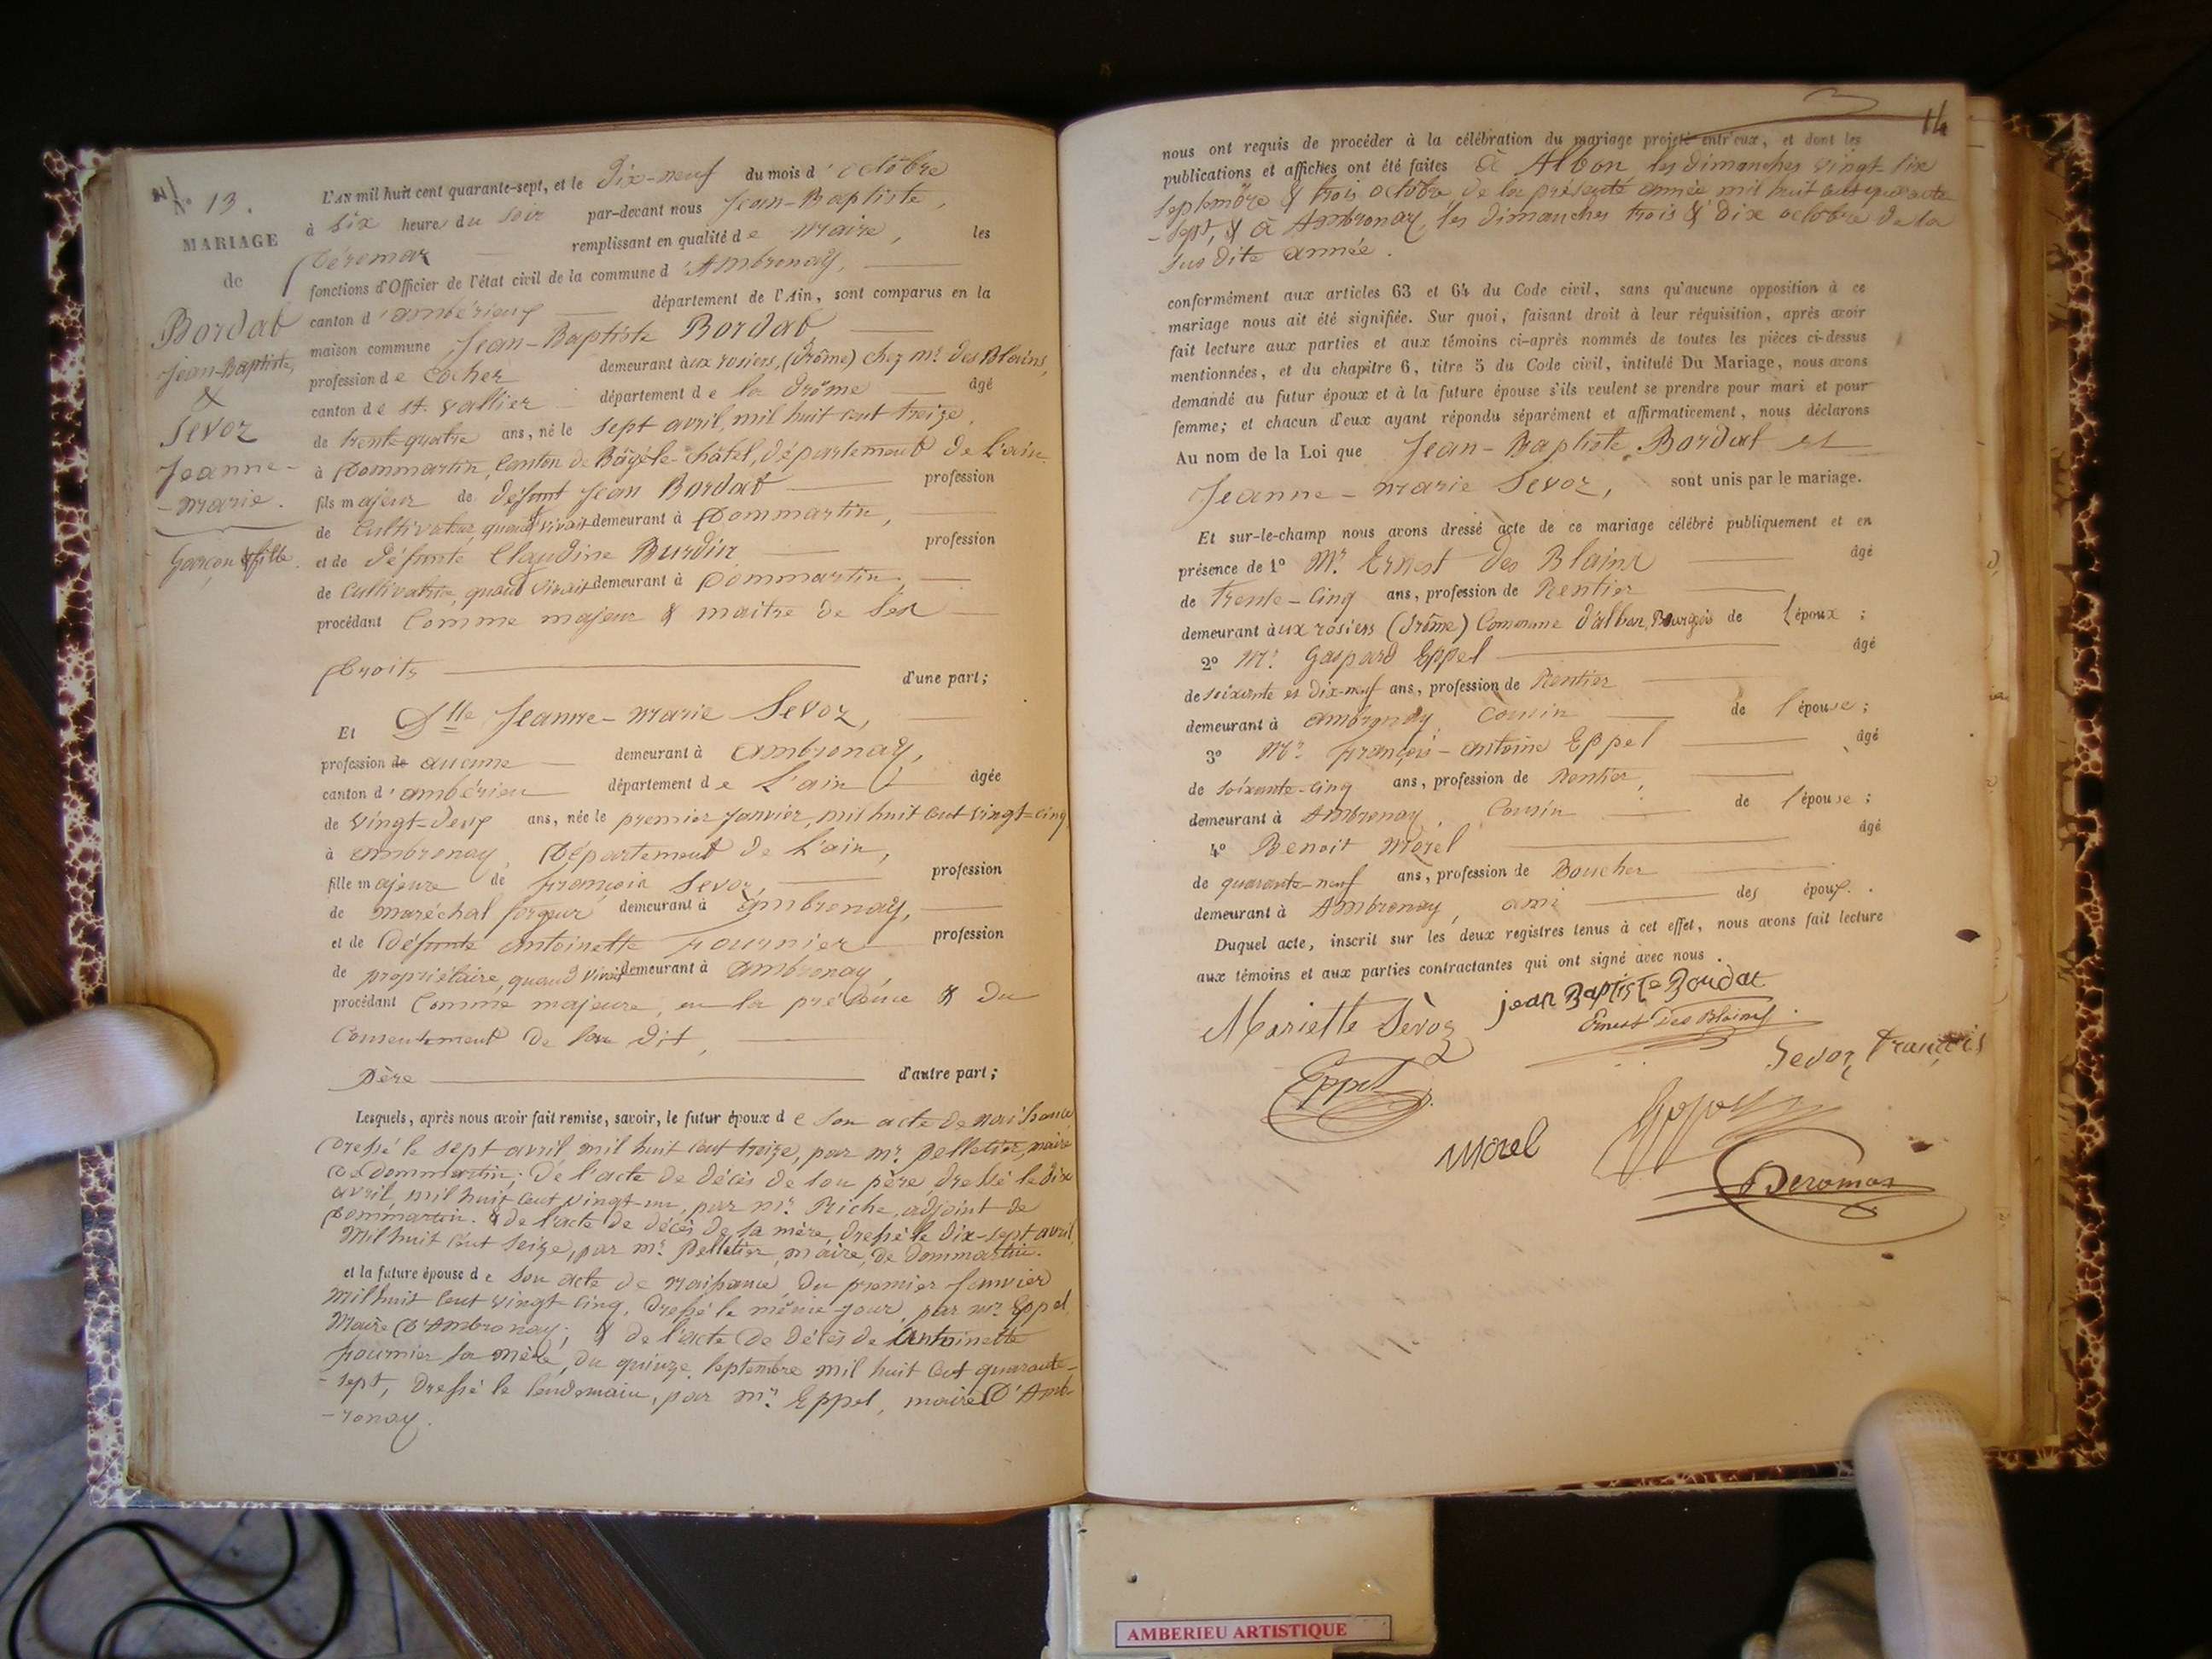 N° 13.
MARIAGE
de
Bordat
Jean-Baptiste,
&
Sevoz
Jeanne-
-Marie.
Garçon & fille.
L'AN mil huit cent quarante-sept, et le Dix-neuf du mois d'octobre
à Six heures du Soir par-devant nous Jean-Baptiste,
Déromas remplissant en qualité de Maire, les
fonctions d'Officier de l'état civil de la commune d'Ambronay,
canton d'ambérieux département de l'Ain, sont comparus en la
maison commune Jean-Baptiste Bordat
profession de Cocher demeurant àux rosiers, (Drôme) chez mr. Des Blains,
canton de St. Vallier département de la Drôme âgé
de trente-quatre ans, né le sept avril, mil huit cent treize,
à Dommartin, Canton de Bâgé-le-Châtel, département de L'ain.
fils majeur de défunt Jean Bordat profession
de Cultivateur, quand vivait demeurant à Dommartin,
et de défunte Claudine Burdin profession
de Cultivatrice, quand vivait demeurant à Dommartin,
procédant Comme majeur & maitre de Ses
Droits d'une part;
Et Dlle Jeanne-Marie Sevoz,
profession de aucune demeurant à Ambronay,
canton d'ambérieu département de L'ain âgée
de Vingt-deux ans, née le premier Janvier, mil huit cent vingt-cinq,
à Ambronay, Département de L'ain,
fille majeure de François Sevoz, profession
de maréchal forgeur demeurant à Ambronay,
et de Défunte Antoinette Fournier profession
de propriétaire, quand vivait demeurant à Ambronay,
procédant Comme majeure, en la présence & du
Consentement de Son dit,
Père d'autre part;
Lesquels, après nous avoir fait remise, savoir, le futur époux de Son acte de naissance
Dressé le sept avril mil huit cent treize, par mr. Pelletier, maire
de dommartin; De l'acte de décès de son père, dressé le dix
avril, mil huit cent vingt-un, par mr. Riche, adjoint de
Dommartin. & de l'acte de décès de sa mère, dressé le dix-sept avril,
Mil huit cent Seize, par mr. Pelletier, maire, de Dommartin.
et la future épouse de Son acte de naissance, du premier Janvier
Mil huit cent vingt-cinq, dressé le même jour, par mr. Eppel
Maire D'Ambronay; & de l'acte de décès de Antoinette
Fournier sa mère, du quinze Septembre mil huit cent quarante-
-sept, Dressé le lendemain, par mr. Eppel, maire D'Amb-
-ronay.
14
nous ont requis de procéder à la célébration du mariage projeté entr'eux, et dont les
publications et affiches ont été faites à Albon les dimanches vingt-six
Septembre & trois octobre, de la présente année mil huit cent quarante
-sept, & à Ambronay, les dimanches trois & dix octobre de la
sus dite année.
conformément aux articles 63 et 64 du Code civil, sans qu'aucune opposition à ce
mariage nous ait été signifiée. Sur quoi, faisant droit à leur réquisition, après avoir
fait lecture aux parties et aux témoins ci-après nommés de toutes les pièces ci-dessus
mentionnées, et du chapitre 6, titre 5 du Code civil, intitulé Du Mariage, nous avons
demandé au futur époux et à la future épouse s'ils veulent se prendre pour mari et pour
femme; et chacun d'eux ayant répondu séparément et affirmativement, nous déclarons
Au nom de la Loi que Jean-Baptiste Bordat et
Jeanne-Marie Sevoz, sont unis par le mariage.
Et sur-le-champ nous avons dressé acte de ce mariage célébré publiquement et en
présence de 1° Mr. Ernest Des Blains âgé
de Trente-cinq ans, profession de Rentier
demeurant àux rosiers (Drôme) Commune d'albon, Bourgeois de l'époux;
2° Mr. Gaspard Eppel âgé
de soixante et dix-neuf ans, profession de Rentier
demeurant à Ambronay, Cousin de l'épouse;
3° Mr. François-Antoine Eppel âgé
de soixante-cinq ans, profession de Rentier,
demeurant à Ambronay, Cousin de l'épouse;
4° Benoit Morel âgé
de quarante-neuf ans, profession de Boucher
demeurant à Ambronay, ami des époux.
Duquel acte, inscrit sur les deux registres tenus à cet effet, nous avons fait lecture
aux témoins et aux parties contractantes qui ont signé avec nous.
Mariette Sèvoz jean Baptiste Bordat
Ernest Des Blains
Sevoz François
Eppel
Morel
Deromas
AMBERIEU ARTISTIQUE